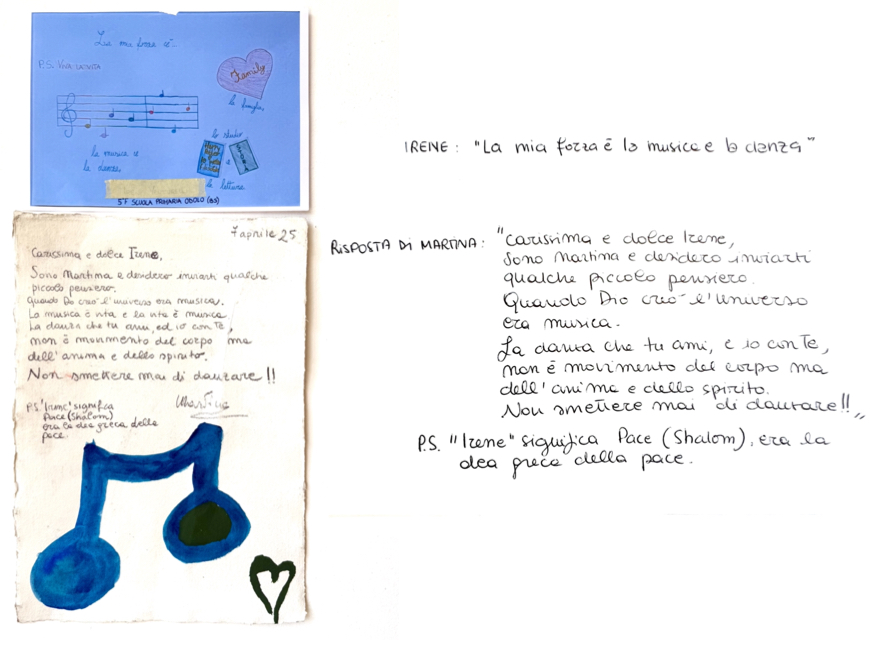 La mia forza è...
P.S. VIVA LA VITA
Family
la famiglia
lo studio
la musica e
la danza
la lettura
5°F SCUOLA PRIMARIA ODOLO (BS)
7 aprile 25
Carissima e dolce Irene,
Sono Martina e desidero inviarti qualche
piccolo pensiero.
Quando Dio creò l'universo era musica.
La musica è vita e la vita è musica
La danza che tu ami, ed io con Te,
non è movimento del corpo ma
dell'anima e dello spirito.
Non smettere mai di danzare!!
P.S. "Irene" significa
Pace (Shalom)
era la dea greca della
pace.
Martina
IRENE: "La mia forza è la musica e la danza"
RISPOSTA DI MARTINA: "Carissima e dolce Irene,
Sono Martina e desidero inviarti
qualche piccolo pensiero.
Quando Dio creò l'universo
era musica.
La danza che tu ami, e io con Te,
non è movimento del corpo ma
dell'anima e dello spirito.
Non smettere mai di danzare!!"
P.S. "Irene" significa Pace (Shalom), era la
dea greca della pace.